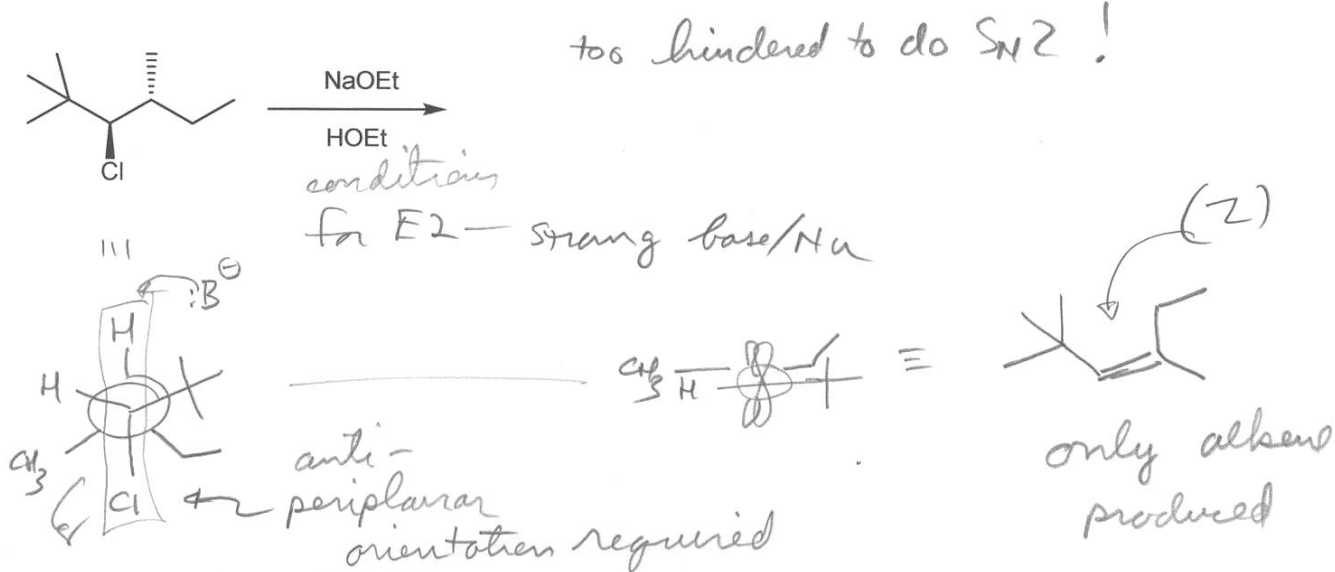 too hindered to do SN2 !
NaOEt
HOEt
Cl
conditions
for E2 — strong base/Nu
(Z)
:B⊖
H
H
CH3
Cl
anti-
periplanar
orientation required
CH3
H
≡
only alkene
produced